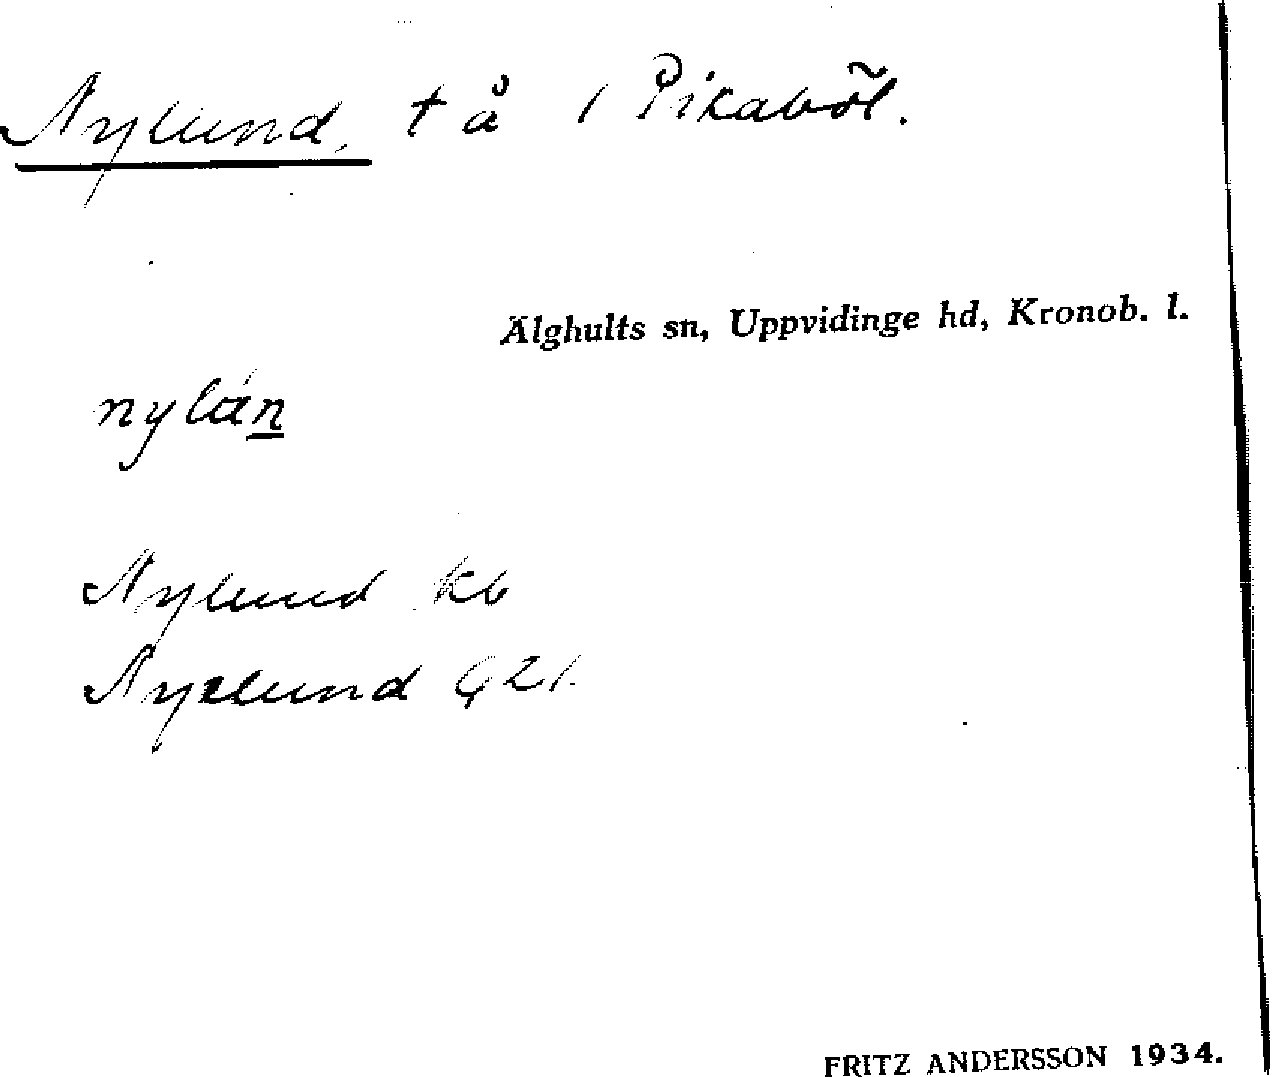 Nylund, t å i Pikaböl.
Älghults sn, Uppvidinge hd, Kronob. l.
nylán
Nylund kb
Nyelund G21.
FRITZ ANDERSSON 1934.